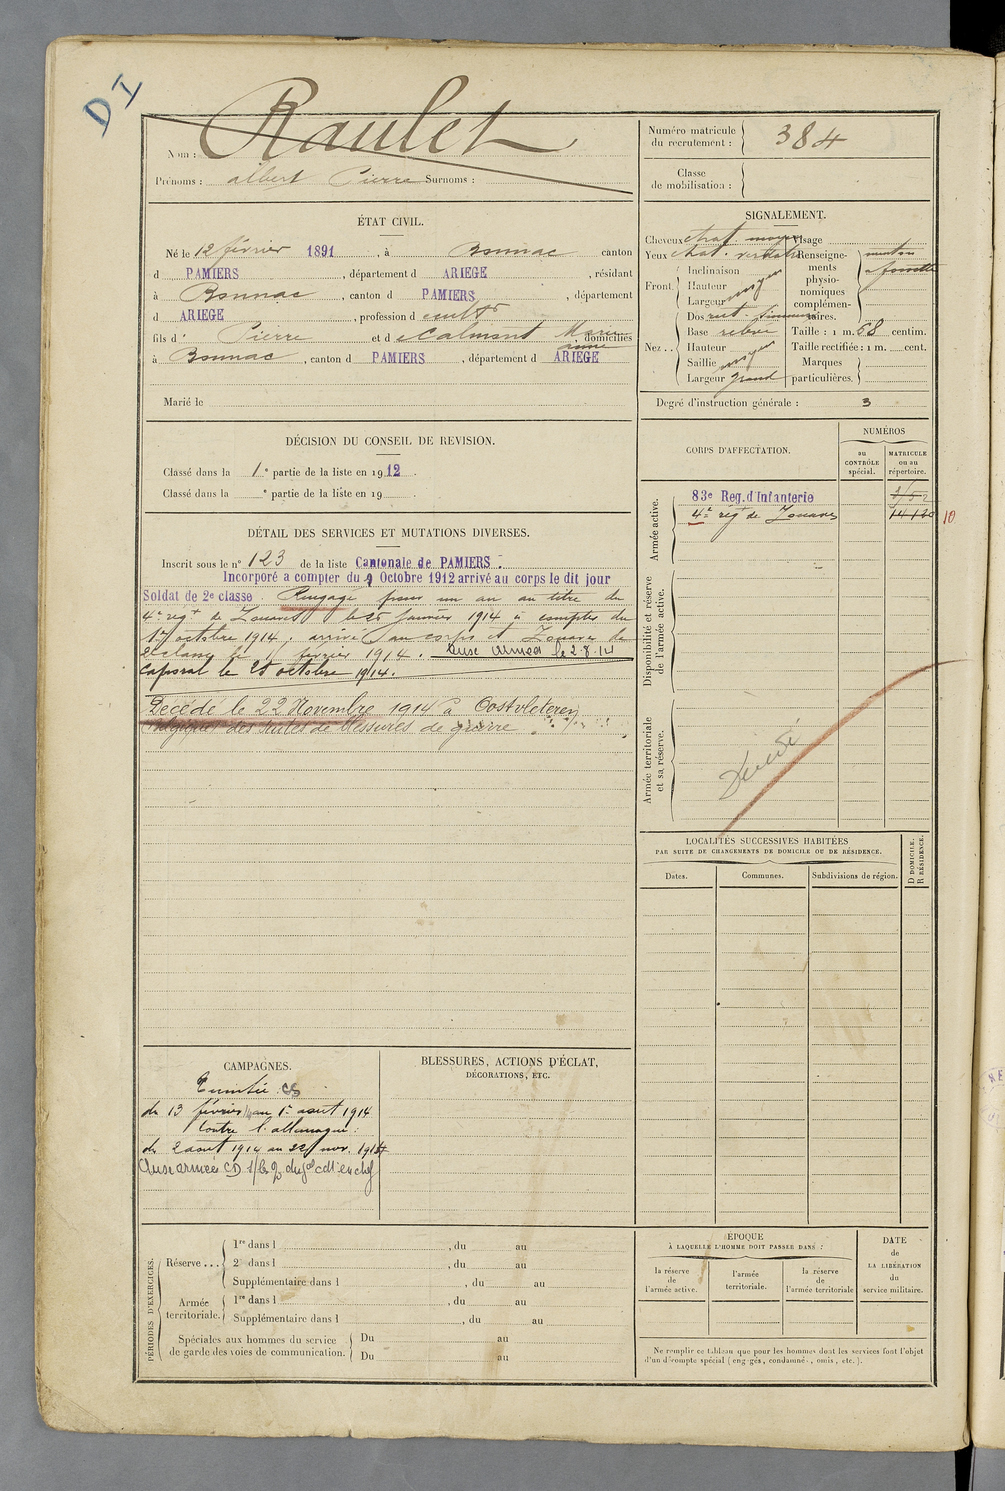 DI
Nom : Raulet
Prénoms : albert Pierre Surnoms :
Numéro matricule
du recrutement : 384
Classe
de mobilisation :
ÉTAT CIVIL.
Né le 12 février 1891, à Bonnac canton
d PAMIERS, département d ARIEGE, résidant
à Bonnac, canton d PAMIERS, département
d ARIEGE, profession d cultr
fils d Pierre et de Calmont Marie
anne, domiciliés
à Bonnac, canton d PAMIERS, département d ARIEGE
Marié le
SIGNALEMENT.
Cheveux chat. moyen Visage
Yeux chat. verdatre
Front. Inclinaison
Hauteur
Largeur moyen
Nez .. Dos rect. sinueux
Base relevée
Hauteur
Saillie moyen
Largeur grand
Renseigne-
ments
physio-
nomiques
complémen-
taires.
menton
fossette
Taille : 1 m. 68 centim.
Taille rectifiée : 1 m. cent.
Marques
particulières.
Degré d'instruction générale : 3
DÉCISION DU CONSEIL DE REVISION.
Classé dans la 1e partie de la liste en 1912.
Classé dans la e partie de la liste en 19
DÉTAIL DES SERVICES ET MUTATIONS DIVERSES.
Inscrit sous le n° 123 de la liste Cantonale de PAMIERS.
Incorporé a compter du 9 Octobre 1912 arrivé au corps le dit jour
Soldat de 2e classe. Rengagé pour un an au titre du
4e regt de Zouaves le 25 janvier 1914 à compter du
1er octobre 1914. arrivé au corps et Zouave de
2e classe le février 1914. aux armées le 2.8.14
Caporal le 25 octobre 1914.
Décédé le 22 Novembre 1914 à Oostvleteren
Belgique des suites de blessures de guerre
CORPS D'AFFECTATION.
NUMÉROS
au
CONTRÔLE
spécial.
MATRICULE
ou au
répertoire.
Armée active.
83e Reg. d'Infanterie
4e regt de Zouaves 10
Disponibilité et réserve
de l'armée active.
Armée territoriale
et sa réserve.
Décédé
LOCALITÉS SUCCESSIVES HABITÉES
PAR SUITE DE CHANGEMENTS DE DOMICILE OU DE RÉSIDENCE.
Dates.
Communes.
Subdivisions de région.
D DOMICILE.
R RÉSIDENCE.
CAMPAGNES.
Tunisie : CS
du 13 février au 1er août 1914
Contre l'allemagne :
du 2 août 1914 au 22 nov. 1914
Aux armées CD
BLESSURES, ACTIONS D'ÉCLAT,
DÉCORATIONS, ETC.
PÉRIODES D'EXERCICES.
Réserve ...
1re dans l , du au
2 dans l , du au
Supplémentaire dans l , du au
Armée
territoriale.
1re dans l , du au
Supplémentaire dans l , du au
Spéciales aux hommes du service
de garde des voies de communication.
Du au
Du au
ÉPOQUE
À LAQUELLE L'HOMME DOIT PASSER DANS :
la réserve
de
l'armée active.
l'armée
territoriale.
la réserve
de
l'armée territoriale
DATE
de
LA LIBÉRATION
du
service militaire.
Ne remplir ce tableau que pour les hommes dont les services font l'objet
d'un décompte spécial (engagés, condamnés, omis, etc.).